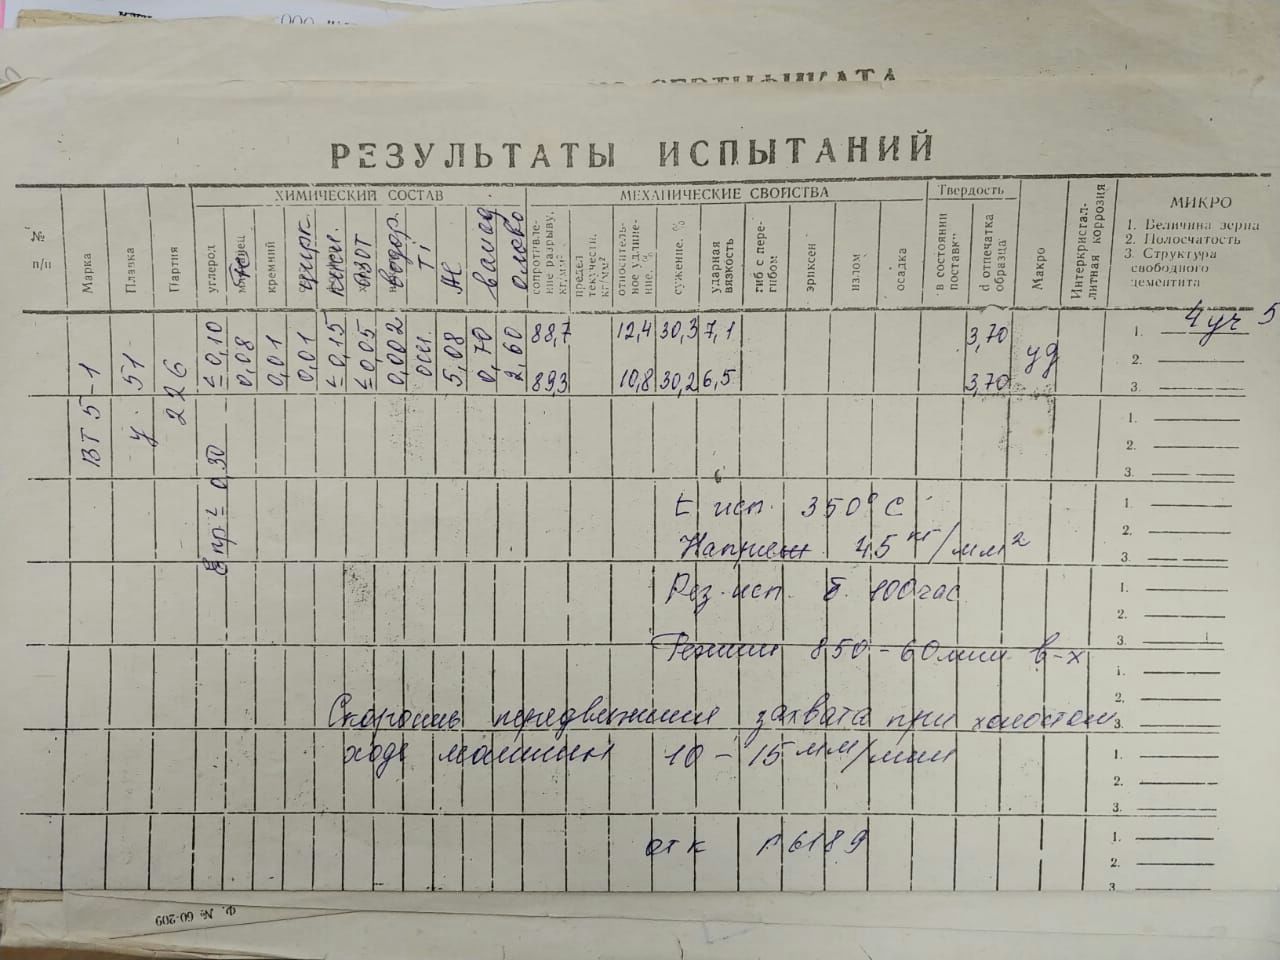 СЕРТИФИКАТА
РЕЗУЛЬТАТЫ ИСПЫТАНИЙ
№ п/п
Марка
Плавка
Партия
ХИМИЧЕСКИЙ СОСТАВ
углерод
кремний
цирк.
кисл.
азот
водор.
Ti
Ж
ванад
олово
МЕХАНИЧЕСКИЕ СВОЙСТВА
сопротивле-
ние разрыву,
кг/мм²
предел
текучести,
кг/мм²
относитель-
ное удлине-
ние, %
сужение, %
ударная
вязкость
гиб с пере-
гибом
эриксен
излом
осадка
Твердость
в состоянии
поставки
d отпечатка
образца
Макро
Интеркристал-
литная коррозия
МИКРО
1. Величина зерна
2. Полосчатость
3. Структура
свободного
цементита
ВТ 5-1
у. 51
226
≤ 0,10
0,08
0,01
0,01
≤ 0,15
≤ 0,05
0,002
осн.
5,08
0,70
2,60
88,7 12,4 30,3 7,1 3,70
уд
89,3 10,8 30,2 6,5 3,70
1. 4 уч 5
2.
3.
1.
2.
3.
Е пр ≤ 0,30
t исп. 350° С
1.
2.
Напряж 45 кг/мм²
3.
Рез. исп. б. 100 час
1.
2.
3.
Режим 850 - 60 мин в-х
1.
2.
Скорость передвижения захвата при холостом
3.
ходе машин 10 - 15 мм/мин
1.
2.
3.
отк р 6189
1.
2.
3
Ф. № 60-209